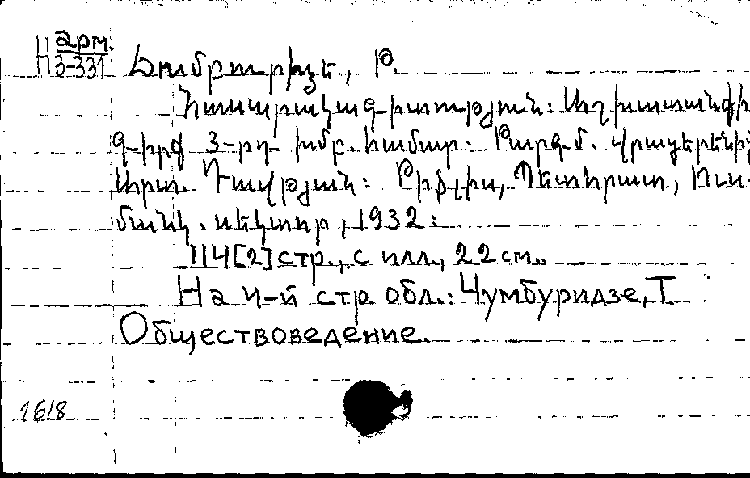 арм.
Н 3-331
Ճումբուրիձե, Թ.
Հասարակագիտություն: Աշխատանքի
գիրք 3-րդ խմբ. համար. Թարգմ. վրացերենից
Դավթյան: Թիֆլիս, Պետհրատ, Ուս
մանկ. սեկտոր, 1932:
114[2] стр., с илл., 22 см.
На 4-й стр. обл.: Чумбуридзе, Т
Обществоведение.
1618